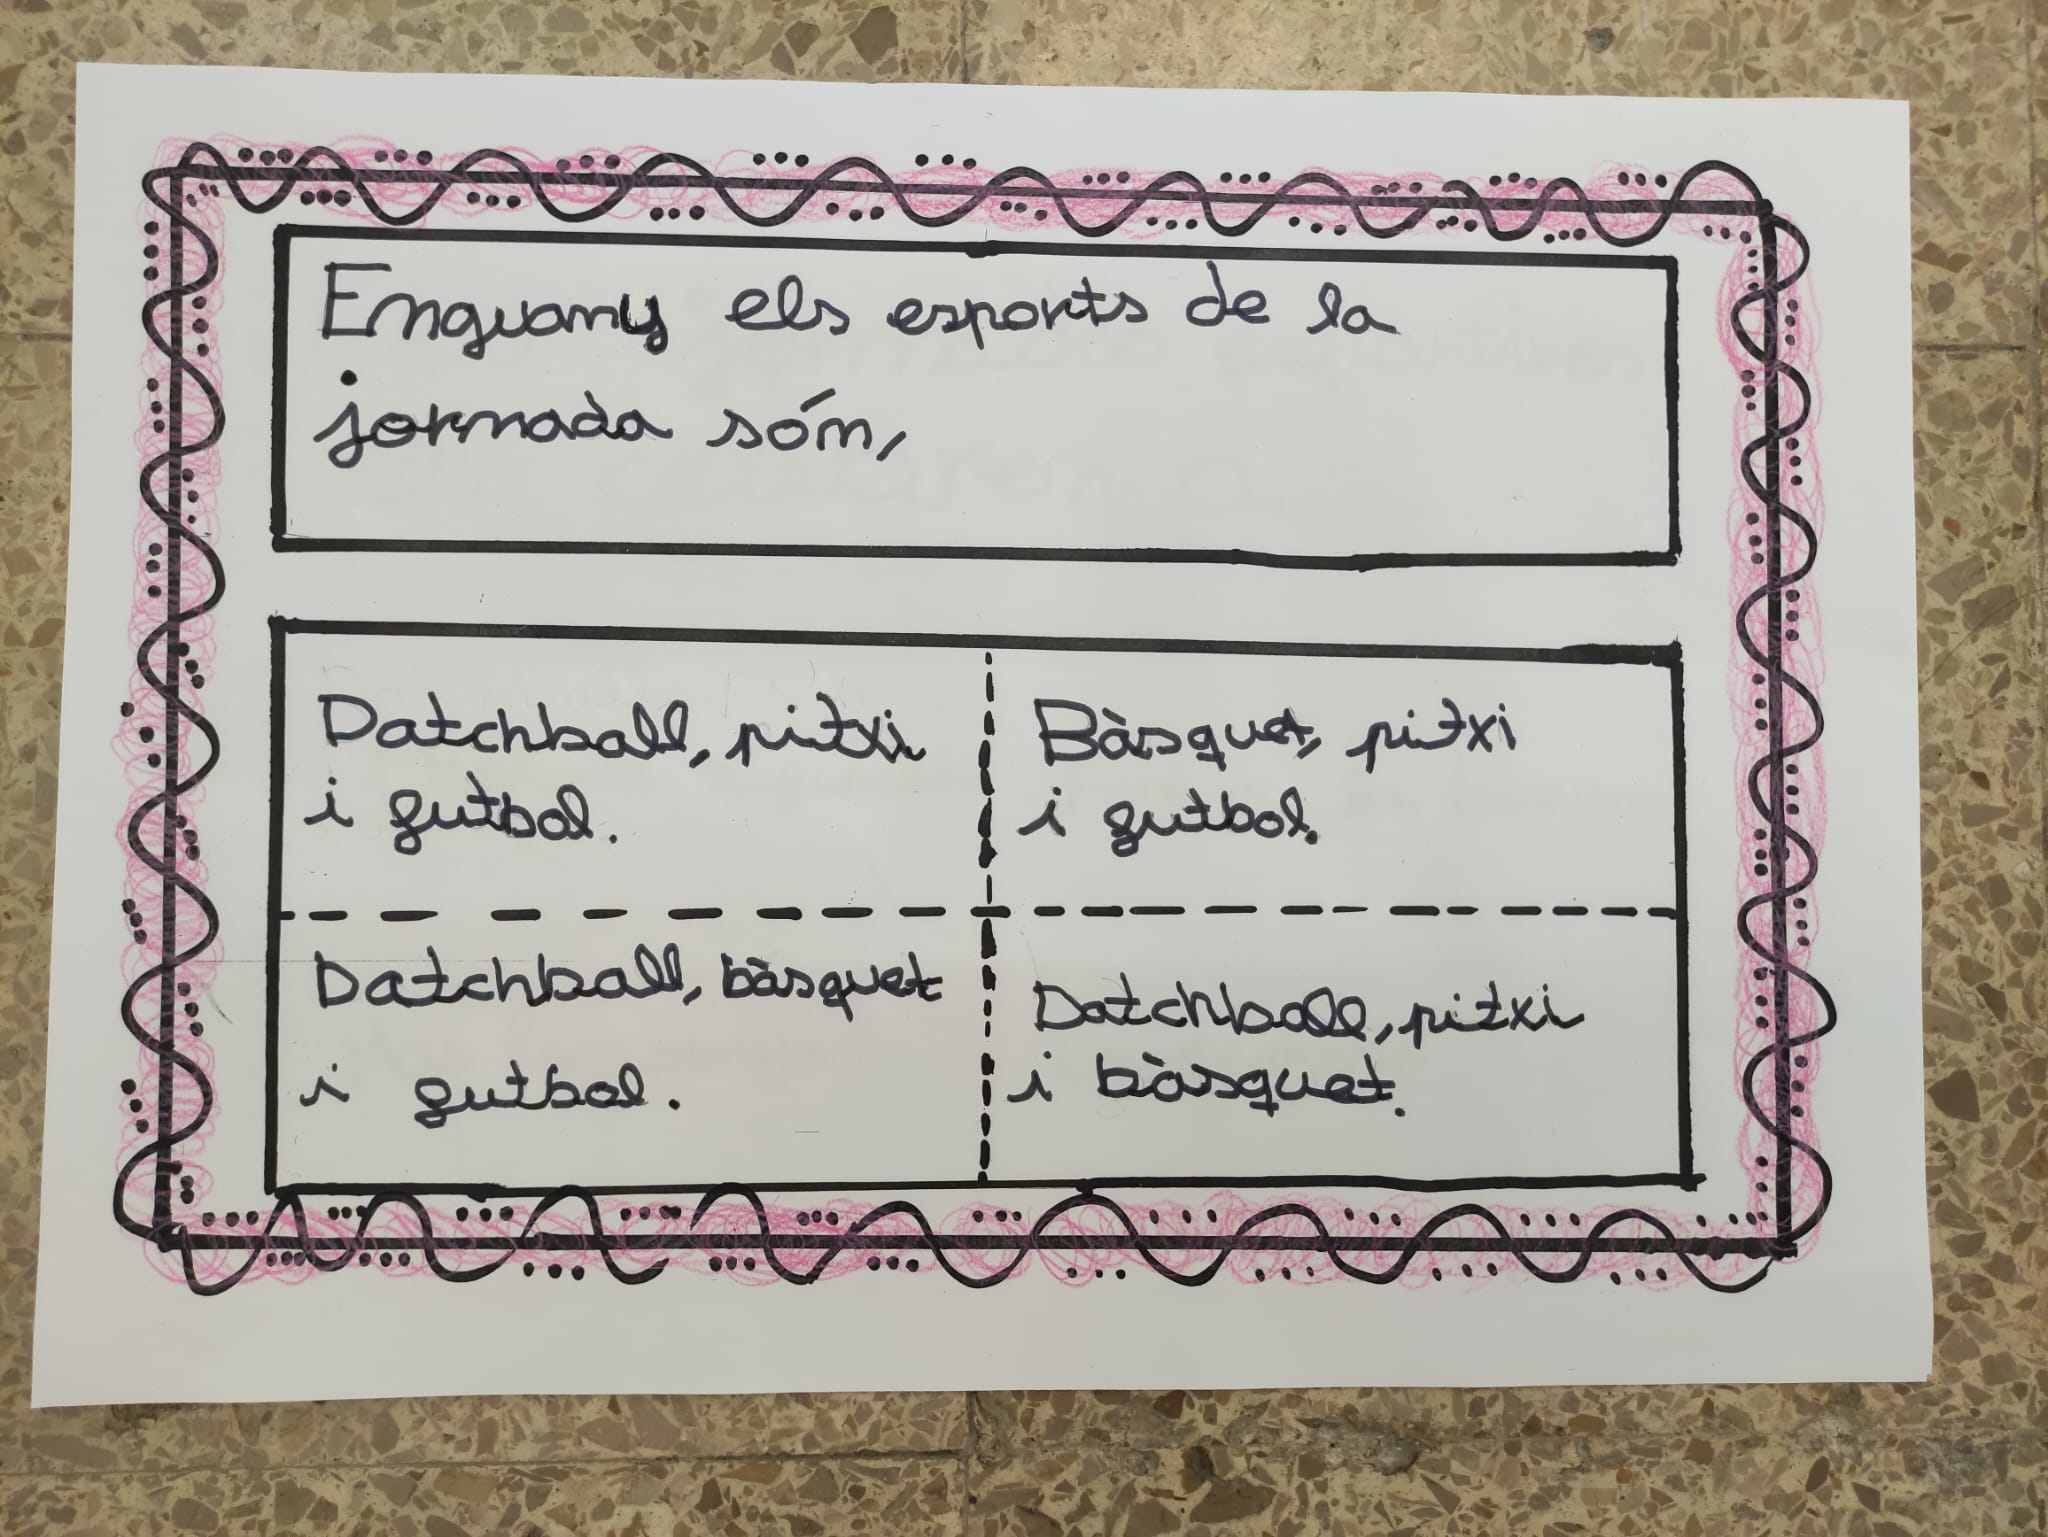 Enguany els esports de la
jornada són,
Datchball, pitxi
i futbol.
Bàsquet, pitxi
i futbol.
Datchball, bàsquet
i futbol.
Datchball, pitxi
i bàsquet.